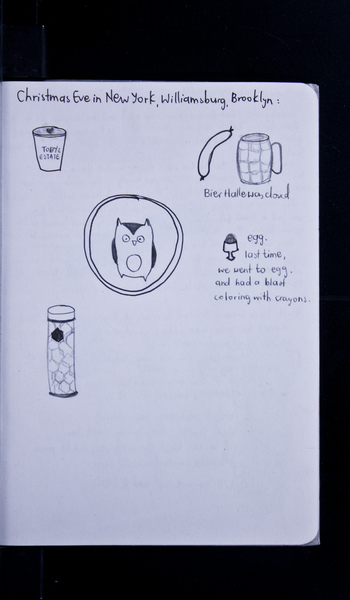 Christmas Eve in New York, Williamsburg, Brooklyn:
TOBY'S
ESTATE
Bier Halle was closed
egg.
last time,
we went to egg.
and had a blast
coloring with crayons.